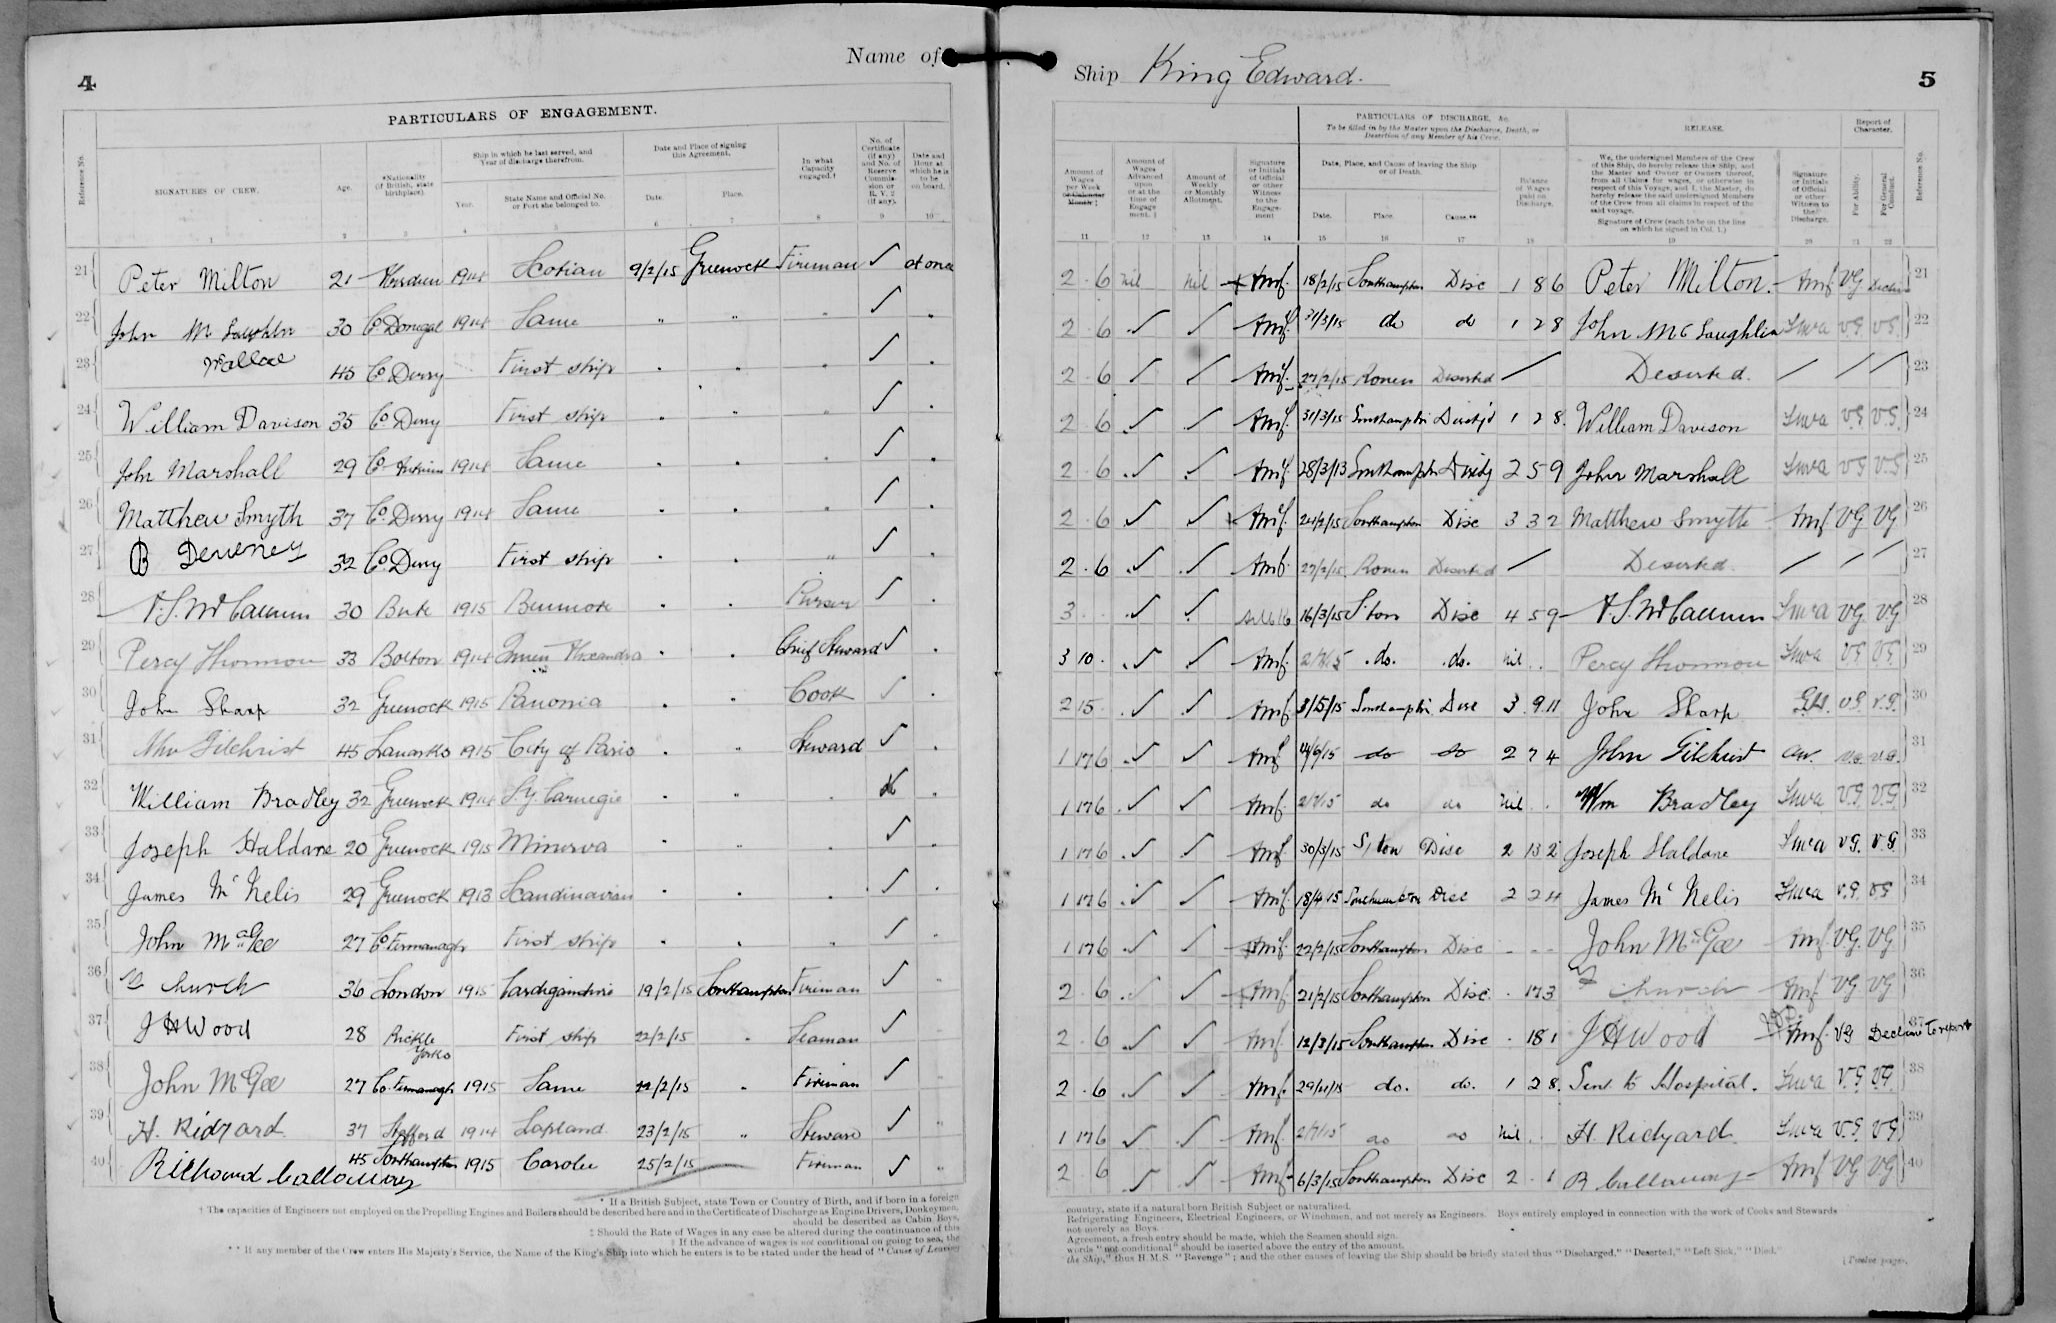 4
Name of
PARTICULARS OF ENGAGEMENT.
Reference No.
SIGNATURES OF CREW.
Age.
*Nationality (If British, state birthplace).
Ship in which he last served, and Year of discharge therefrom.
Year.
State Name and Official No. or Port she belonged to.
Date and Place of signing this Agreement.
Date.
Place.
In what Capacity engaged.†
No. of Certificate (if any) and No. of Reserve Commission or R.V. 2 (if any).
Date and Hour at which he is to be on board.
1 2 3 4 5 6 7 8 9 10
21 Peter Milton 21 1914 Scotian 9/2/15 Greenock Fireman ✓ at once
22 John McLaughlin 30 Co Donegal 1914 Same " " " ✓ "
23 Wallace 45 Co Derry First ship " " " ✓ "
24 William Davison 35 Co Derry First ship " " " ✓ "
25 John Marshall 29 Co Antrim 1914 Same " " ✓ "
26 Matthew Smyth 37 Co Derry 1914 Same " " " ✓ "
27 B Deveney 32 Co Derry First ship " " ✓ "
28 A.S. McCallum 30 Bute 1915 Benmore " " Purser ✓ "
29 Percy Thomson 33 Bolton 1914 Queen Alexandra " " Chief Steward ✓ "
30 John Sharp 32 Greenock 1915 Panonia " " Cook ✓ "
31 Jhn Gilchrist 45 Lanarks 1915 City of Paris " " Steward ✓ "
32 William Bradley 32 Greenock 1914 S.Y. Carnegie " " " "
33 Joseph Haldane 20 Greenock 1915 Minerva " " " ✓ "
34 James McNelis 29 Greenock 1913 Scandinavian " " " ✓ "
35 John McGee 27 Co Fermanagh First ship " " " ✓ "
36 Church 36 London 1915 Cardiganshire 19/2/15 Southampton Fireman ✓ "
37 J H Wood 28 Rickle Yorks First ship 22/2/15 " Seaman ✓
38 John McGee 27 Co. Fermanagh 1915 Same 22/2/15 " Fireman ✓
39 H. Ridyard 37 Stafford 1914 Lapland 23/2/15 " Steward ✓ "
40 Richard Callaway 45 Southampton 1915 Caroline 25/2/15 Fireman ✓ "
* If a British Subject, state Town or Country of Birth, and if born in a foreign
† The capacities of Engineers not employed on the Propelling Engines and Boilers should be described here and in the Certificate of Discharge as Engine Drivers, Donkeymen,
should be described as Cabin Boys,
‡ Should the Rate of Wages in any case be altered during the continuance of this
‖ If the advance of wages is not conditional on going to sea, the
** If any member of the Crew enters His Majesty's Service, the Name of the King's Ship into which he enters is to be stated under the head of "Cause of Leaving
Ship King Edward.
5
PARTICULARS OF DISCHARGE, &c.
To be filled in by the Master upon the Discharge, Death, or Desertion of any Member of his Crew.
RELEASE.
Report of Character.
Amount of Wages per Week or Calendar Month‡
Amount of Wages Advanced upon or at the time of Engagement.‖
Amount of Weekly or Monthly Allotment.
Signature or Initials of Official or other Witness to the Engagement
Date, Place, and Cause of leaving the Ship or of Death.
Date.
Place.
Cause.**
Balance of Wages paid on Discharge.
We, the undersigned Members of the Crew of this Ship, do hereby release this Ship, and the Master and Owner or Owners thereof, from all Claims for wages, or otherwise in respect of this Voyage, and I, the Master, do hereby release the said undersigned Members of the Crew from all claims in respect of the said voyage.
Signature of Crew (each to be on the line on which he signed in Col. 1.)
Signature or Initials of Official or other Witness to the Discharge.
For Ability.
For General Conduct.
Reference No.
11 12 13 14 15 16 17 18 19 20 21 22
2 . 6 nil nil Amf. 18/2/15 Southampton Disc 1 8 6 Peter Milton. Amf VG 21
2 . 6 ✓ ✓ Amf. 31/3/15 do do 1 2 8 John McLaughlin V.G. V.G. 22
2 . 6 ✓ ✓ Amf. 27/2/15 Rouen Deserted / Deserted. / / / 23
2 . 6 ✓ ✓ Amf. 31/3/15 Southampton Disch'd 1 2 8. William Davison V.G. V.G. 24
2 . 6 ✓ ✓ Amf. 28/3/13 Southampton Disch'g 2 5 9 John Marshall V.G V.G 25
2 . 6 ✓ ✓ Amf. 24/2/15 Southampton Disc 3 3 2 Matthew Smyth Amf VG VG 26
2 . 6 ✓ ✓ Amf. 27/2/15 Rouen Deserted / Deserted. / / / 27
3 ✓ ✓ 16/3/15 S'ton Disc 4 5 9 A.S. McCallum VG VG 28
3 10 . ✓ ✓ Amf. 2/7/15 do. do. nil Percy Thomson V.G. V.G. 29
2 15 . ✓ ✓ Amf. 3/5/15 Southampton Disc 3 . 9 . 11 John Sharp V.G. V.G. 30
1 17 6 ✓ ✓ Amf 14/6/15 do do 2 7 4 John Gilchrist V.G. V.G. 31
1 17 6 ✓ ✓ Amf. 2/7/15 do do nil . Wm Bradley V.G. V.G. 32
1 17 6 ✓ ✓ Amf 30/3/15 S'ton Disc 2 13 2 Joseph Haldane V.G. V.G. 33
1 17 6 ✓ ✓ Amf. 18/4/15 Southampton Disc 2 2 4 James McNelis V.G. V.G 34
1 17 6 ✓ ✓ Amf. 22/2/15 Southampton Disc - - - John McGee Amf. VG. VG 35
2 . 6 ✓ ✓ Amf. 21/2/15 Southampton Disc. . 17 3 Church Amf VG VG 36
2 . 6 ✓ ✓ Amf 12/3/15 Southampton Disc . 18 1 J H Wood Amf. VG Decline to report 37
2 . 6 ✓ ✓ Amf. 29/4/15 do. do. 1 2 8. Sent to Hospital. V.G. V.G. 38
1 17 6 ✓ ✓ Amf. 2/7/15 do do nil . H. Ridyard. V.G. V.G 39
2 . 6 ✓ ✓ Amf. 6/3/15 Southampton Disc 2 . 1 R Callaway Amf VG VG 40
country, state if a natural born British Subject or naturalized.
Refrigerating Engineers, Electrical Engineers, or Winchmen, and not merely as Engineers. Boys entirely employed in connection with the work of Cooks and Stewards
not merely as Boys.
Agreement, a fresh entry should be made, which the Seamen should sign.
words "not conditional" should be inserted above the entry of the amount.
the Ship," thus H.M.S. "Revenge"; and the other causes of leaving the Ship should be briefly stated thus "Discharged," "Deserted," "Left Sick," "Died."
[Twelve pages.